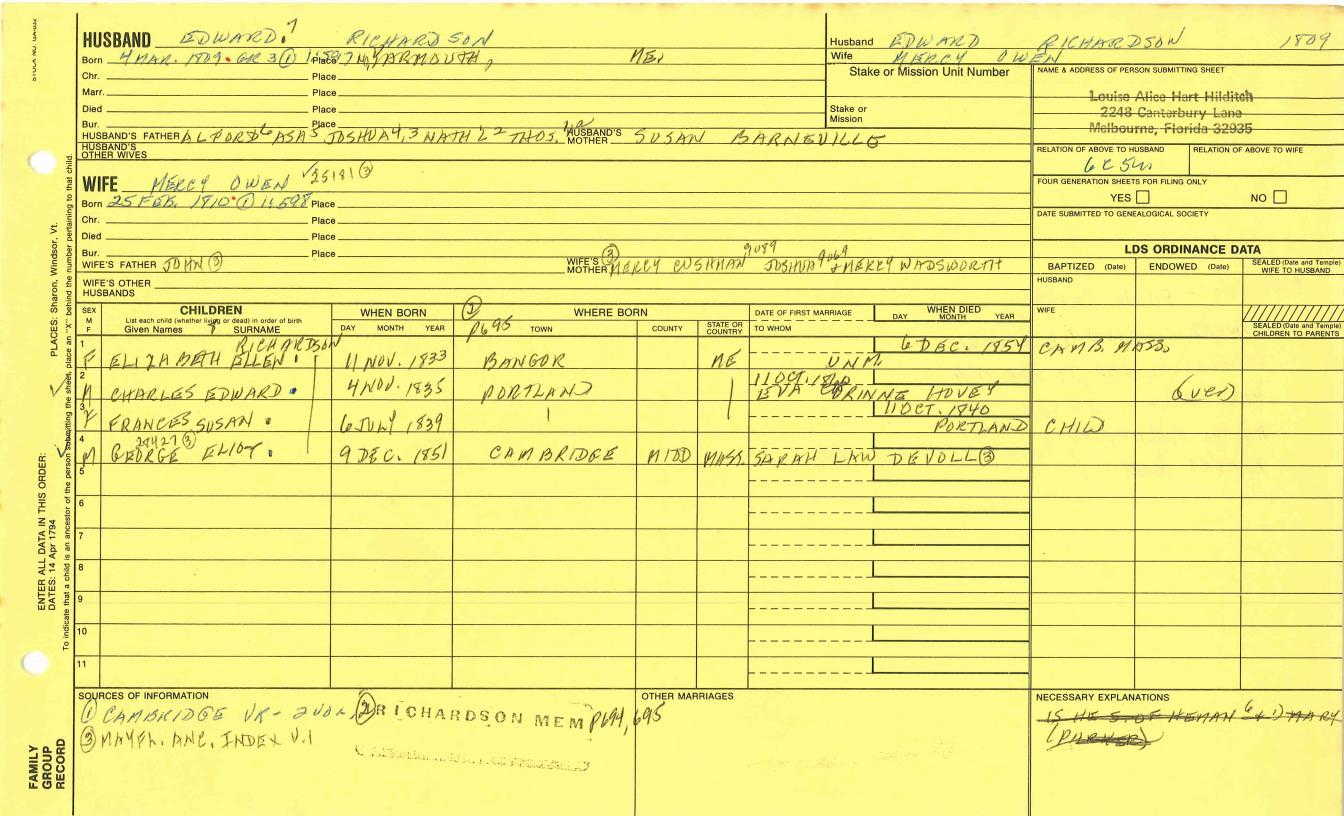 HUSBAND EDWARD 7 RICHARDSON
Born 4 MAR. 1809 GR 3 ① Place N. YARMOUTH, ME.
Chr. Place
Marr. Place
Died Place
Bur. Place
HUSBAND'S FATHER ALFORD 6 ASA 5 JOSHUA 4,3 NATHL 2 THOS. HUSBAND'S MOTHER SUSAN BARNEVILLE
HUSBAND'S OTHER WIVES
WIFE MERCY OWEN √25181 ③
Born 25 FEB. 1810 ① Place
Chr. Place
Died Place
Bur. Place
WIFE'S FATHER JOHN ③ WIFE'S MOTHER ③ MERCY CUSHMAN 9089 JOSHUA 9069 + MERCY WADSWORTH
WIFE'S OTHER HUSBANDS
Husband EDWARD RICHARDSON 1809
Wife MERCY OWEN
Stake or Mission Unit Number
Stake or Mission
NAME & ADDRESS OF PERSON SUBMITTING SHEET
Louise Alice Hart Hilditch
2248 Canterbury Lane
Melbourne, Florida 32935
RELATION OF ABOVE TO HUSBAND RELATION OF ABOVE TO WIFE
6C 5
FOUR GENERATION SHEETS FOR FILING ONLY
YES NO
DATE SUBMITTED TO GENEALOGICAL SOCIETY
LDS ORDINANCE DATA
BAPTIZED (Date) ENDOWED (Date) SEALED (Date and Temple) WIFE TO HUSBAND
HUSBAND
WIFE
SEALED (Date and Temple) CHILDREN TO PARENTS
SEX M F
CHILDREN
List each child (whether living or dead) in order of birth
Given Names SURNAME
WHEN BORN
DAY MONTH YEAR
P695
WHERE BORN
TOWN COUNTY STATE OR COUNTRY
DATE OF FIRST MARRIAGE
TO WHOM
WHEN DIED
DAY MONTH YEAR
RICHARDSON
1 F ELIZABETH ELLEN 11 NOV. 1833 BANGOR ME UNM. 6 DEC. 1854 CAMB. MASS.
2 M CHARLES EDWARD 4 NOV. 1835 PORTLAND EVA CORINNE HOVEY (over)
3 F FRANCES SUSAN 6 JULY 1839 11 OCT. 1840 PORTLAND CHILD
4 M GEORGE ELIOT ③ 9 DEC. 1851 CAMBRIDGE MIDD MASS. SARAH LAW DEVOLL ③
5
6
7
8
9
10
11
SOURCES OF INFORMATION
① CAMBRIDGE VR - 2 VOL. ② RICHARDSON MEM P694, 695
③ MAYFL. ANC. INDEX V.1
OTHER MARRIAGES
NECESSARY EXPLANATIONS
IS HE S. OF HEMAN 6 + MARY
(PARKER)
ENTER ALL DATA IN THIS ORDER:
DATES: 14 Apr 1794 PLACES: Sharon, Windsor, Vt.
To indicate that a child is an ancestor of the person submitting the sheet, place an "X" behind the number pertaining to that child.
FAMILY GROUP RECORD